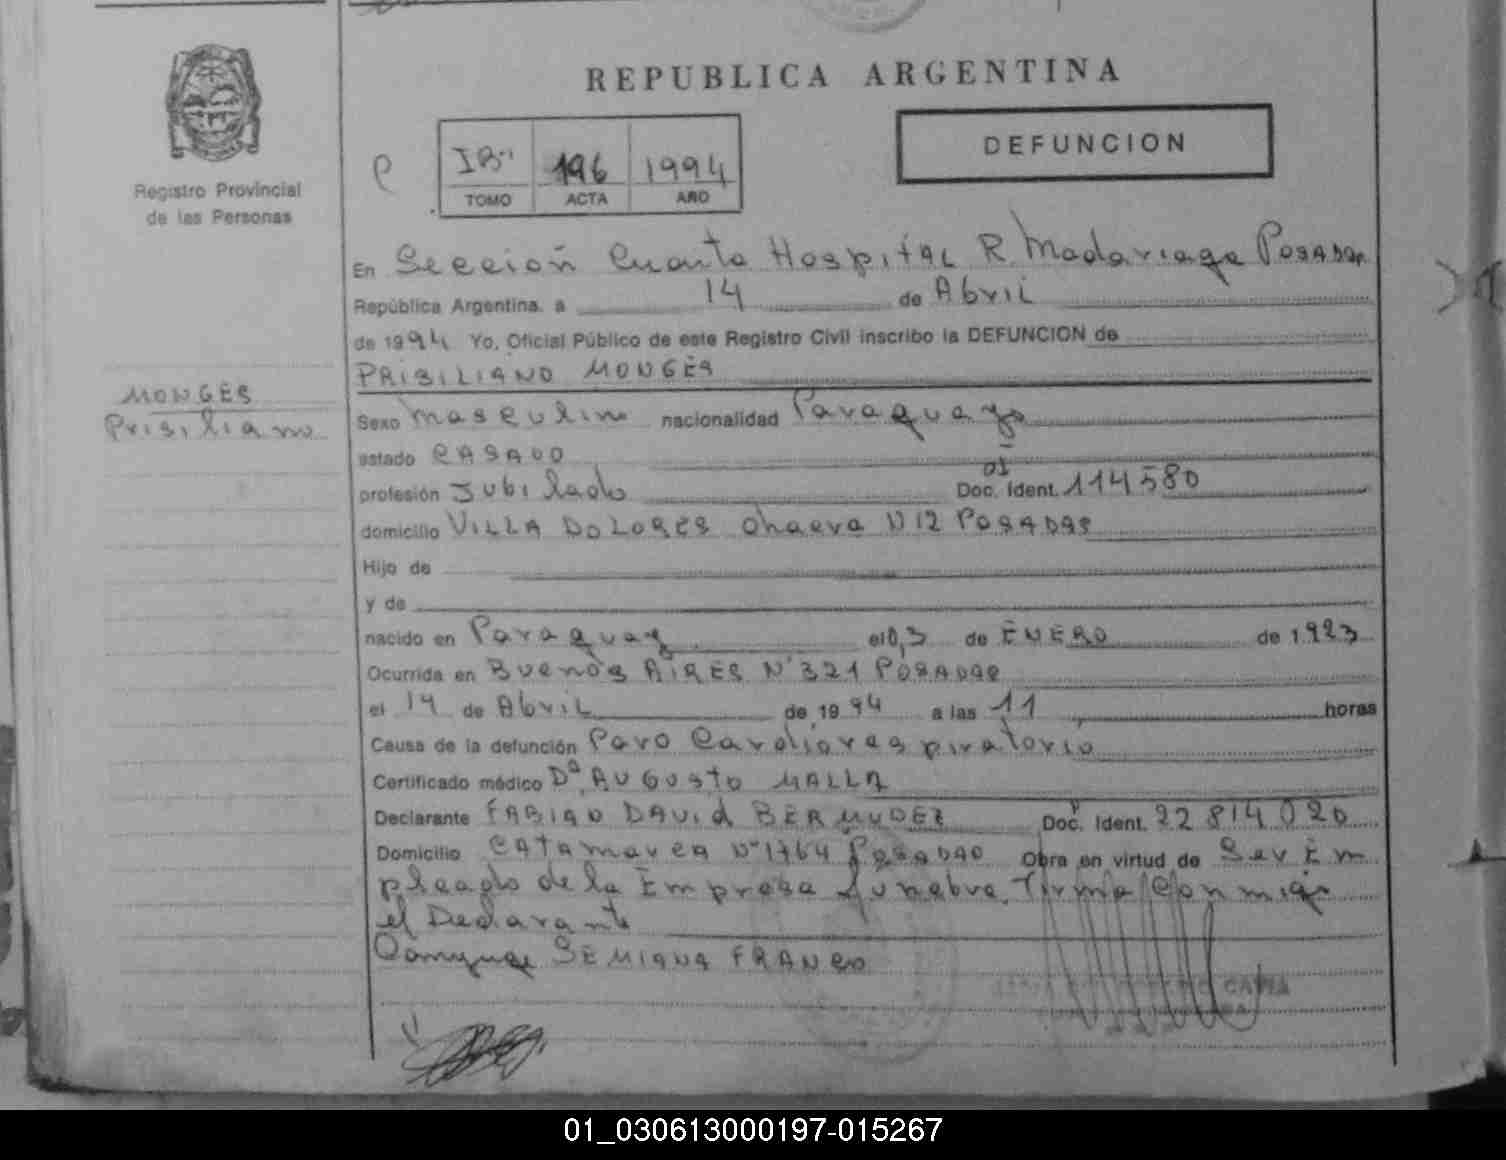 REPUBLICA ARGENTINA
DEFUNCION
Registro Provincial
de las Personas
196 1994
TOMO ACTA AÑO
En Sección Cuarta Hospital R. Madariaga Posadas
República Argentina, a 14 de Abril
de 1994 Yo, Oficial Público de este Registro Civil inscribo la DEFUNCION de
PRISILIANO MONGES
MONGES
Prisiliano
Sexo masculino nacionalidad Paraguayo
estado CASADO
profesión Jubilado Doc. Ident. 114580
domicilio VILLA DOLORES chacra N 12 POSADAS
Hijo de
y de
nacido en Paraguay el 03 de ENERO de 1.923
Ocurrida en BUENOS AIRES N° 321 POSADAS
el 14 de Abril de 1994 a las 11 horas
Causa de la defunción Paro Cardiorespiratorio
Certificado médico AUGUSTO MALLA
Declarante FABIAN DAVID BERMUDEZ Doc. Ident. 22814020
Domicilio CATAMARCA N° 1764 POSADAS Obra en virtud de Ser Em
pleado de la Empresa funebre. Firma Conmigo
el Declarante
FRANCO
01_030613000197-015267